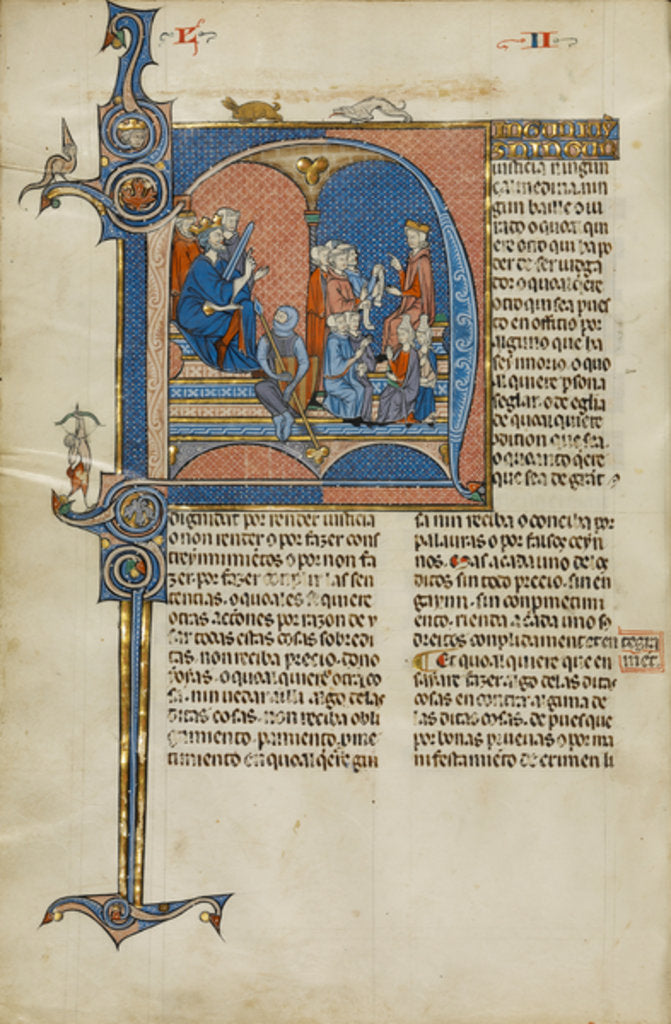 L II
iusticia ningun
çalmedina nin
gun baille o iu
rado o qual qui
ere otro qui ha po
der de ser iudga
dor o qual qere
otro qui sea pues
to en officio por
alguno que ha
seynnorio. o quo
al quiere psona
seglar. o de eglia
de qual quiere
que sea de
dignidat por render iusticia
o non render o por fazer cons
treynnimietos o por non fa
zer por fazer las sen
tencias. o quales quiere
otras actiones por razon de y
todas estas cosas sobredi
tas. non reciba precio. dono
o qual quiere otra co
sa. nin algo delas
ditas cosas. non reciba obli
gamiento. paramiento.
timiento en qual qere gui
sa nin reciba o conciba por
palauras o por falsos
nos. Mas a cada uno delos
ditos sin todo precio. sin en
gaynno. sin conpmetimi
ento. rienda a cada uno so
dreitos conplidament et en
tegra
ment.
Et qual quiere que en
sayare fazer algo delas ditas
cosas en contra alguna de
las ditas cosas. depues que
por bonas prueuas o por ma
nifestamieto de crimen li